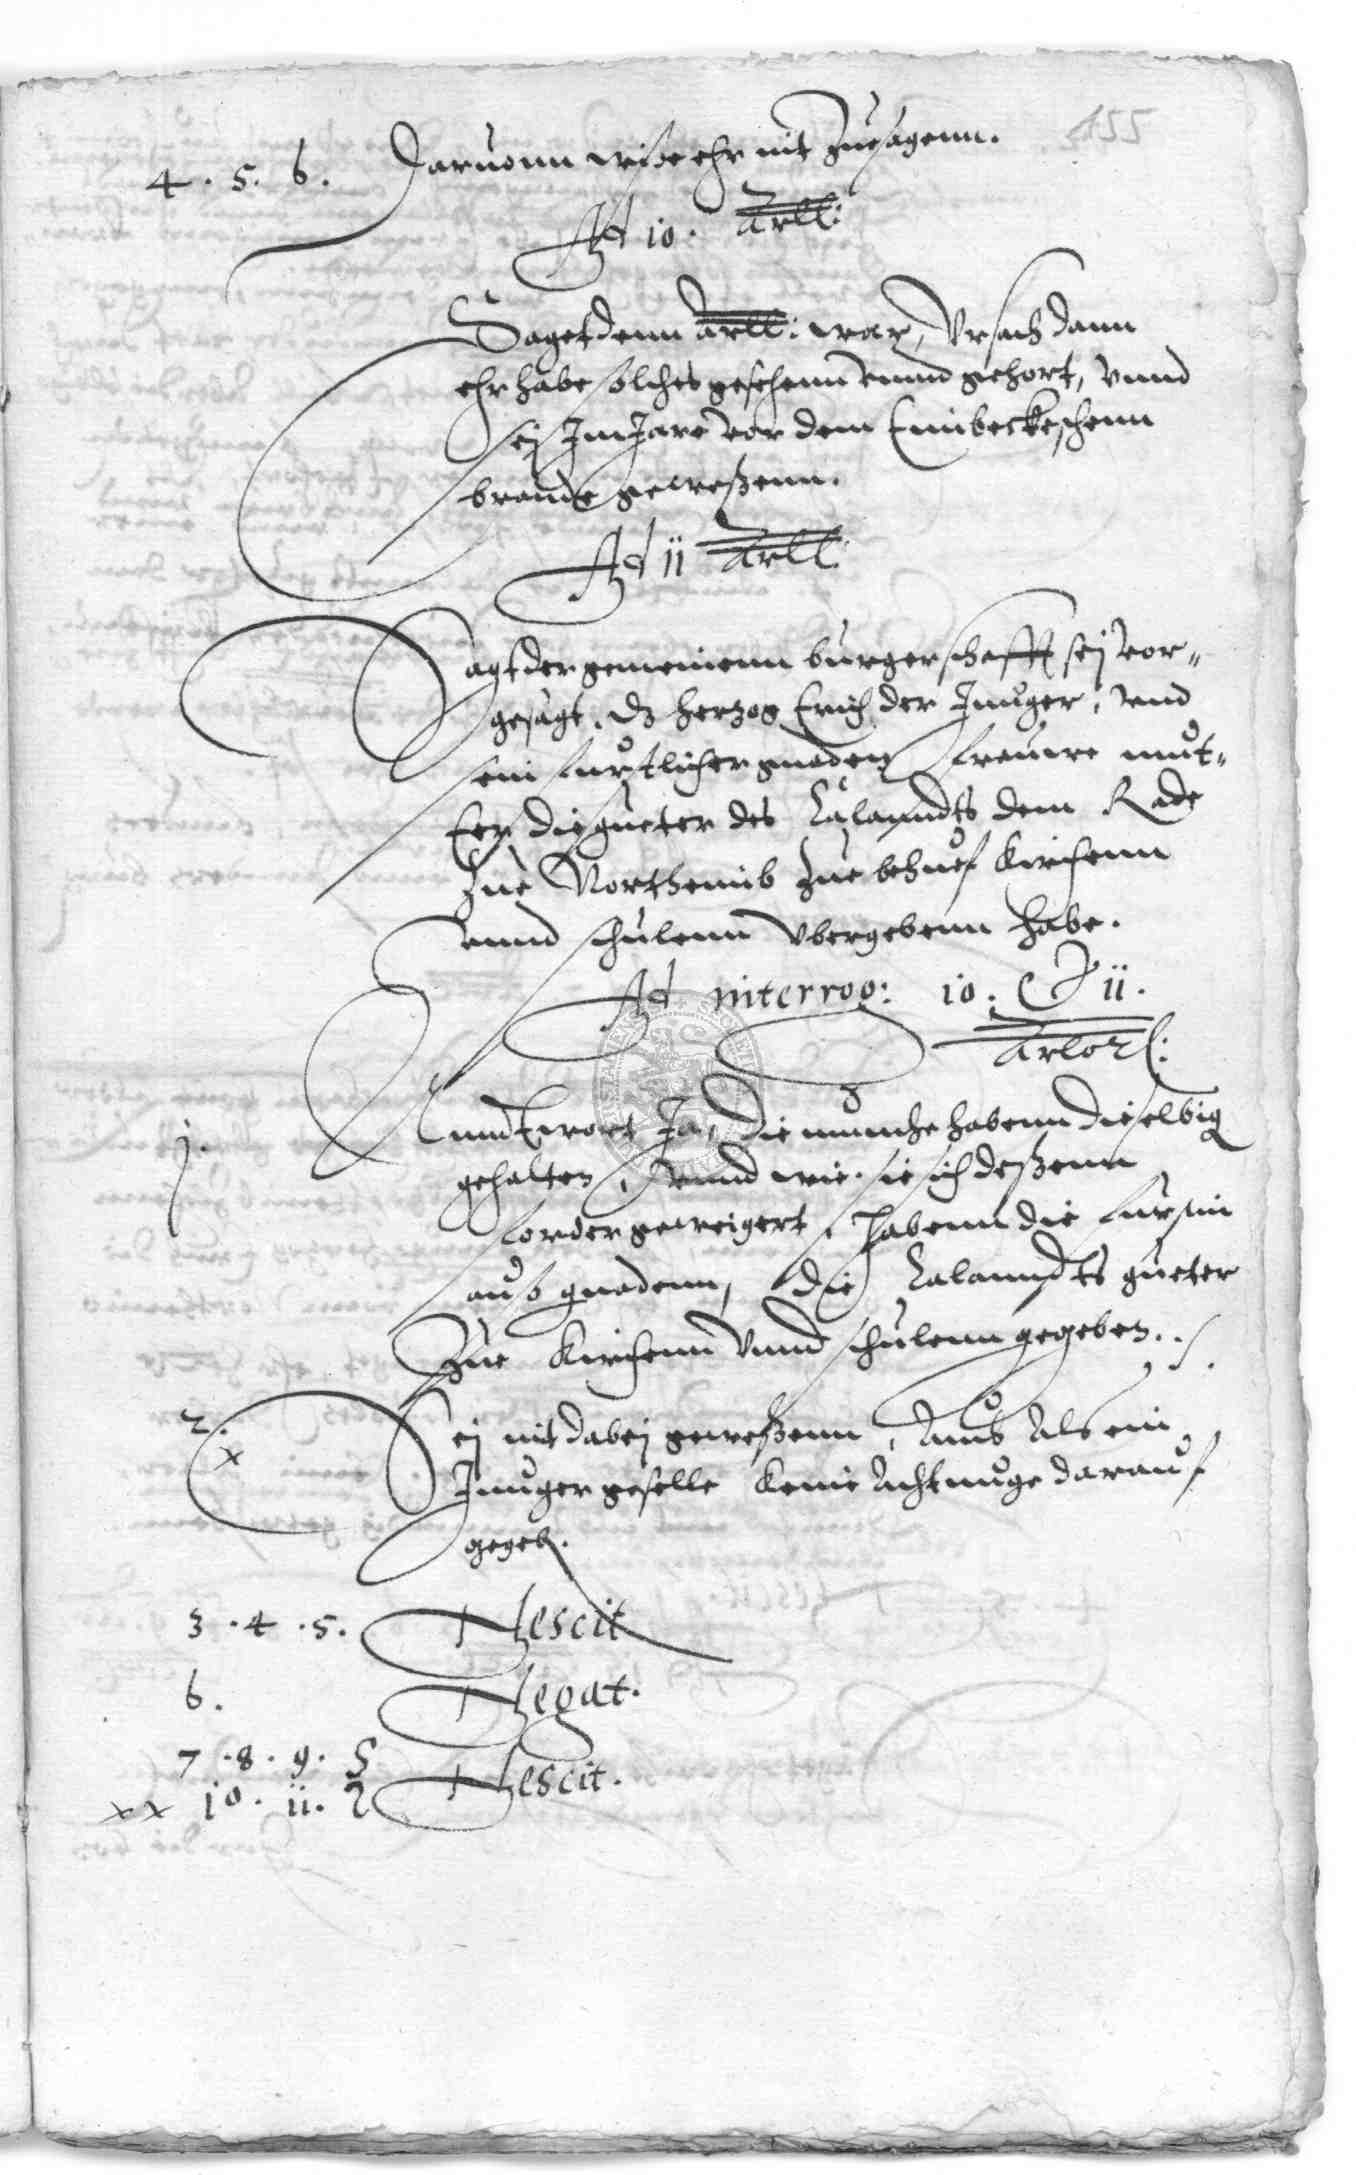 155
4 . 5 . 6 . Daruonn wiße ehr nit zuesagenn.
Ad 10 . Arll:
Saget denn Arll: war, Vrsach dann
ehr habe solches gesehenn vnnd gehort, vnnd
sey Im Jare vor dem Einbeckeschenn
brande geweßenn.
Ad 11 Arll:
Sagt der gemeinenn burgerschafft sey vor„
gesagt, dz hertzog Erich der Junger, vnd
sein furstlicher gnaden frauwe mut„
ter die gueter des Calanndts dem Rade
zue Northeimb zue behuef kirchenn
vnnd schulenn vbergebenn habe.
Ad interrog: 10 . & 11 .
Arlorl:
1. Anndtwort Ja, die munche habenn dieselbig
gehalten, vnnd wie sie sich deßenn
forder geweigert, habenn die fursin
auß gnadenn, die Calanndts gueter
zue kirchenn vnnd schulenn gegeben . .
2. x Sey nit dabey geweßenn, Auch Als ein
Junger geselle keine Achtunge darauf
gegeben.
3 . 4 . 5 . Nescit
6 . Negat.
7 . 8 . 9 .
xx 10 . 11 . Nescit.